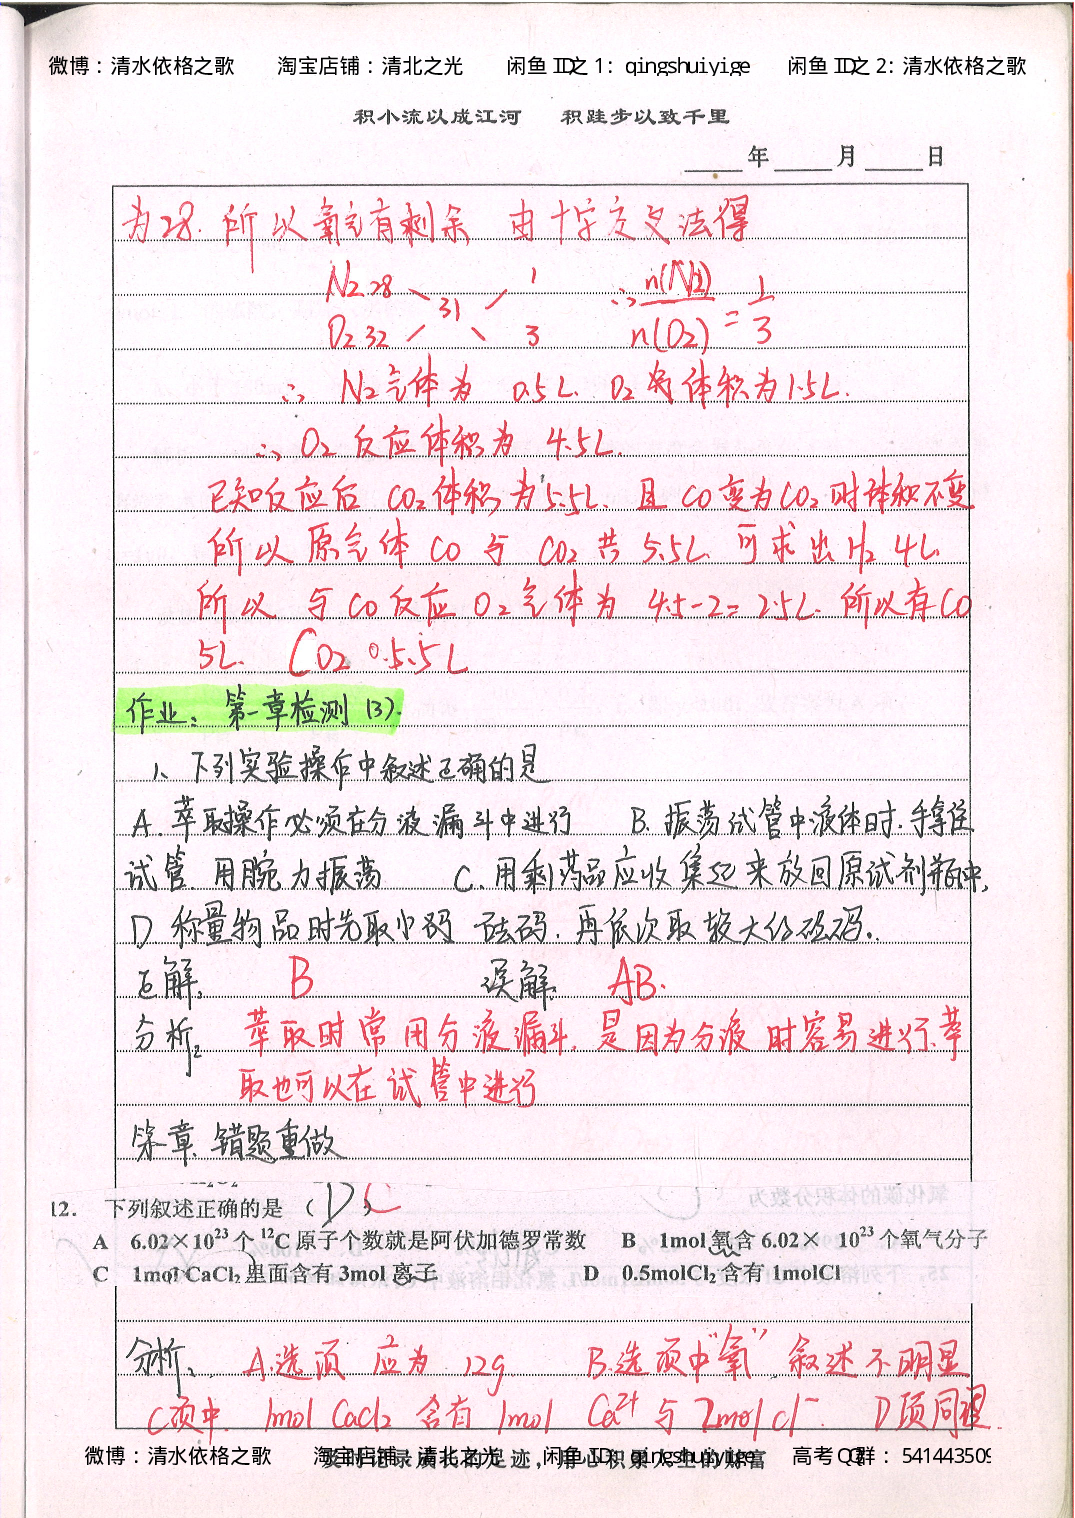 微博：清水依格之歌 淘宝店铺：清北之光 闲鱼ID之1：qingshuiyige 闲鱼ID之2：清水依格之歌
积小流以成江河 积跬步以致千里
年 月 日
为28. 所以氧气有剩余 由十字交叉法得
N₂ 28 1 ∴ n(N₂) 1
31 = 
O₂ 32 3 n(O₂) 3
∴ N₂气体为 0.5L O₂气体积为1.5L.
∴ O₂反应体积为 4.5L.
已知反应后 CO₂体积为5.5L. 且CO变为CO₂时体积不变
所以原气体CO与CO₂共5.5L 可求出H₂ 4L
所以 与CO反应O₂气体为 4.5-2=2.5L. 所以有CO
5L. CO₂ 0.5L
作业：第一章检测(3).
1、下列实验操作中叙述正确的是
A. 萃取操作必须在分液漏斗中进行 B. 振荡试管中液体时.手拿住
试管.用腕力振荡 C. 用剩药品应收集起来放回原试剂瓶中,
D 称量物品时先取小码 砝码.再依次取较大的砝码.
正解: B 误解: AB.
分析: 萃取时常用分液漏斗.是因为分液时容易进行.萃
取也可以在试管中进行
第一章 错题重做
12. 下列叙述正确的是（D）C
A 6.02×10²³个¹²C原子个数就是阿伏加德罗常数 B 1mol氧含6.02× 10²³个氧气分子
C 1molCaCl₂里面含有3mol离子 D 0.5molCl₂含有1molCl
分析: A选项 应为 12g B.选项中"氧"叙述不明显
C项中. 1mol CaCl₂ 含有 1mol Ca²⁺与2mol Cl⁻. D项同理
及时记录成长的足迹，用心积累人生的财富
微博：清水依格之歌 淘宝店铺：清北之光 闲鱼ID：qingshuiyige 高考QQ群：541443509